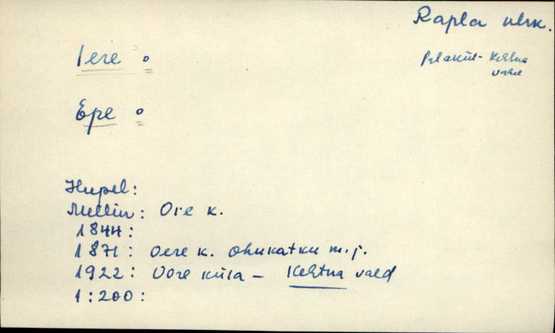 Rapla khk.
Iere o
Kehtna
vald
Epe o
Hupel:
Mellin: Ore k.
1844:
1871: Oere k. Ohukatku m.j.
1922: Oore küla - Kehtna vald
1:200: